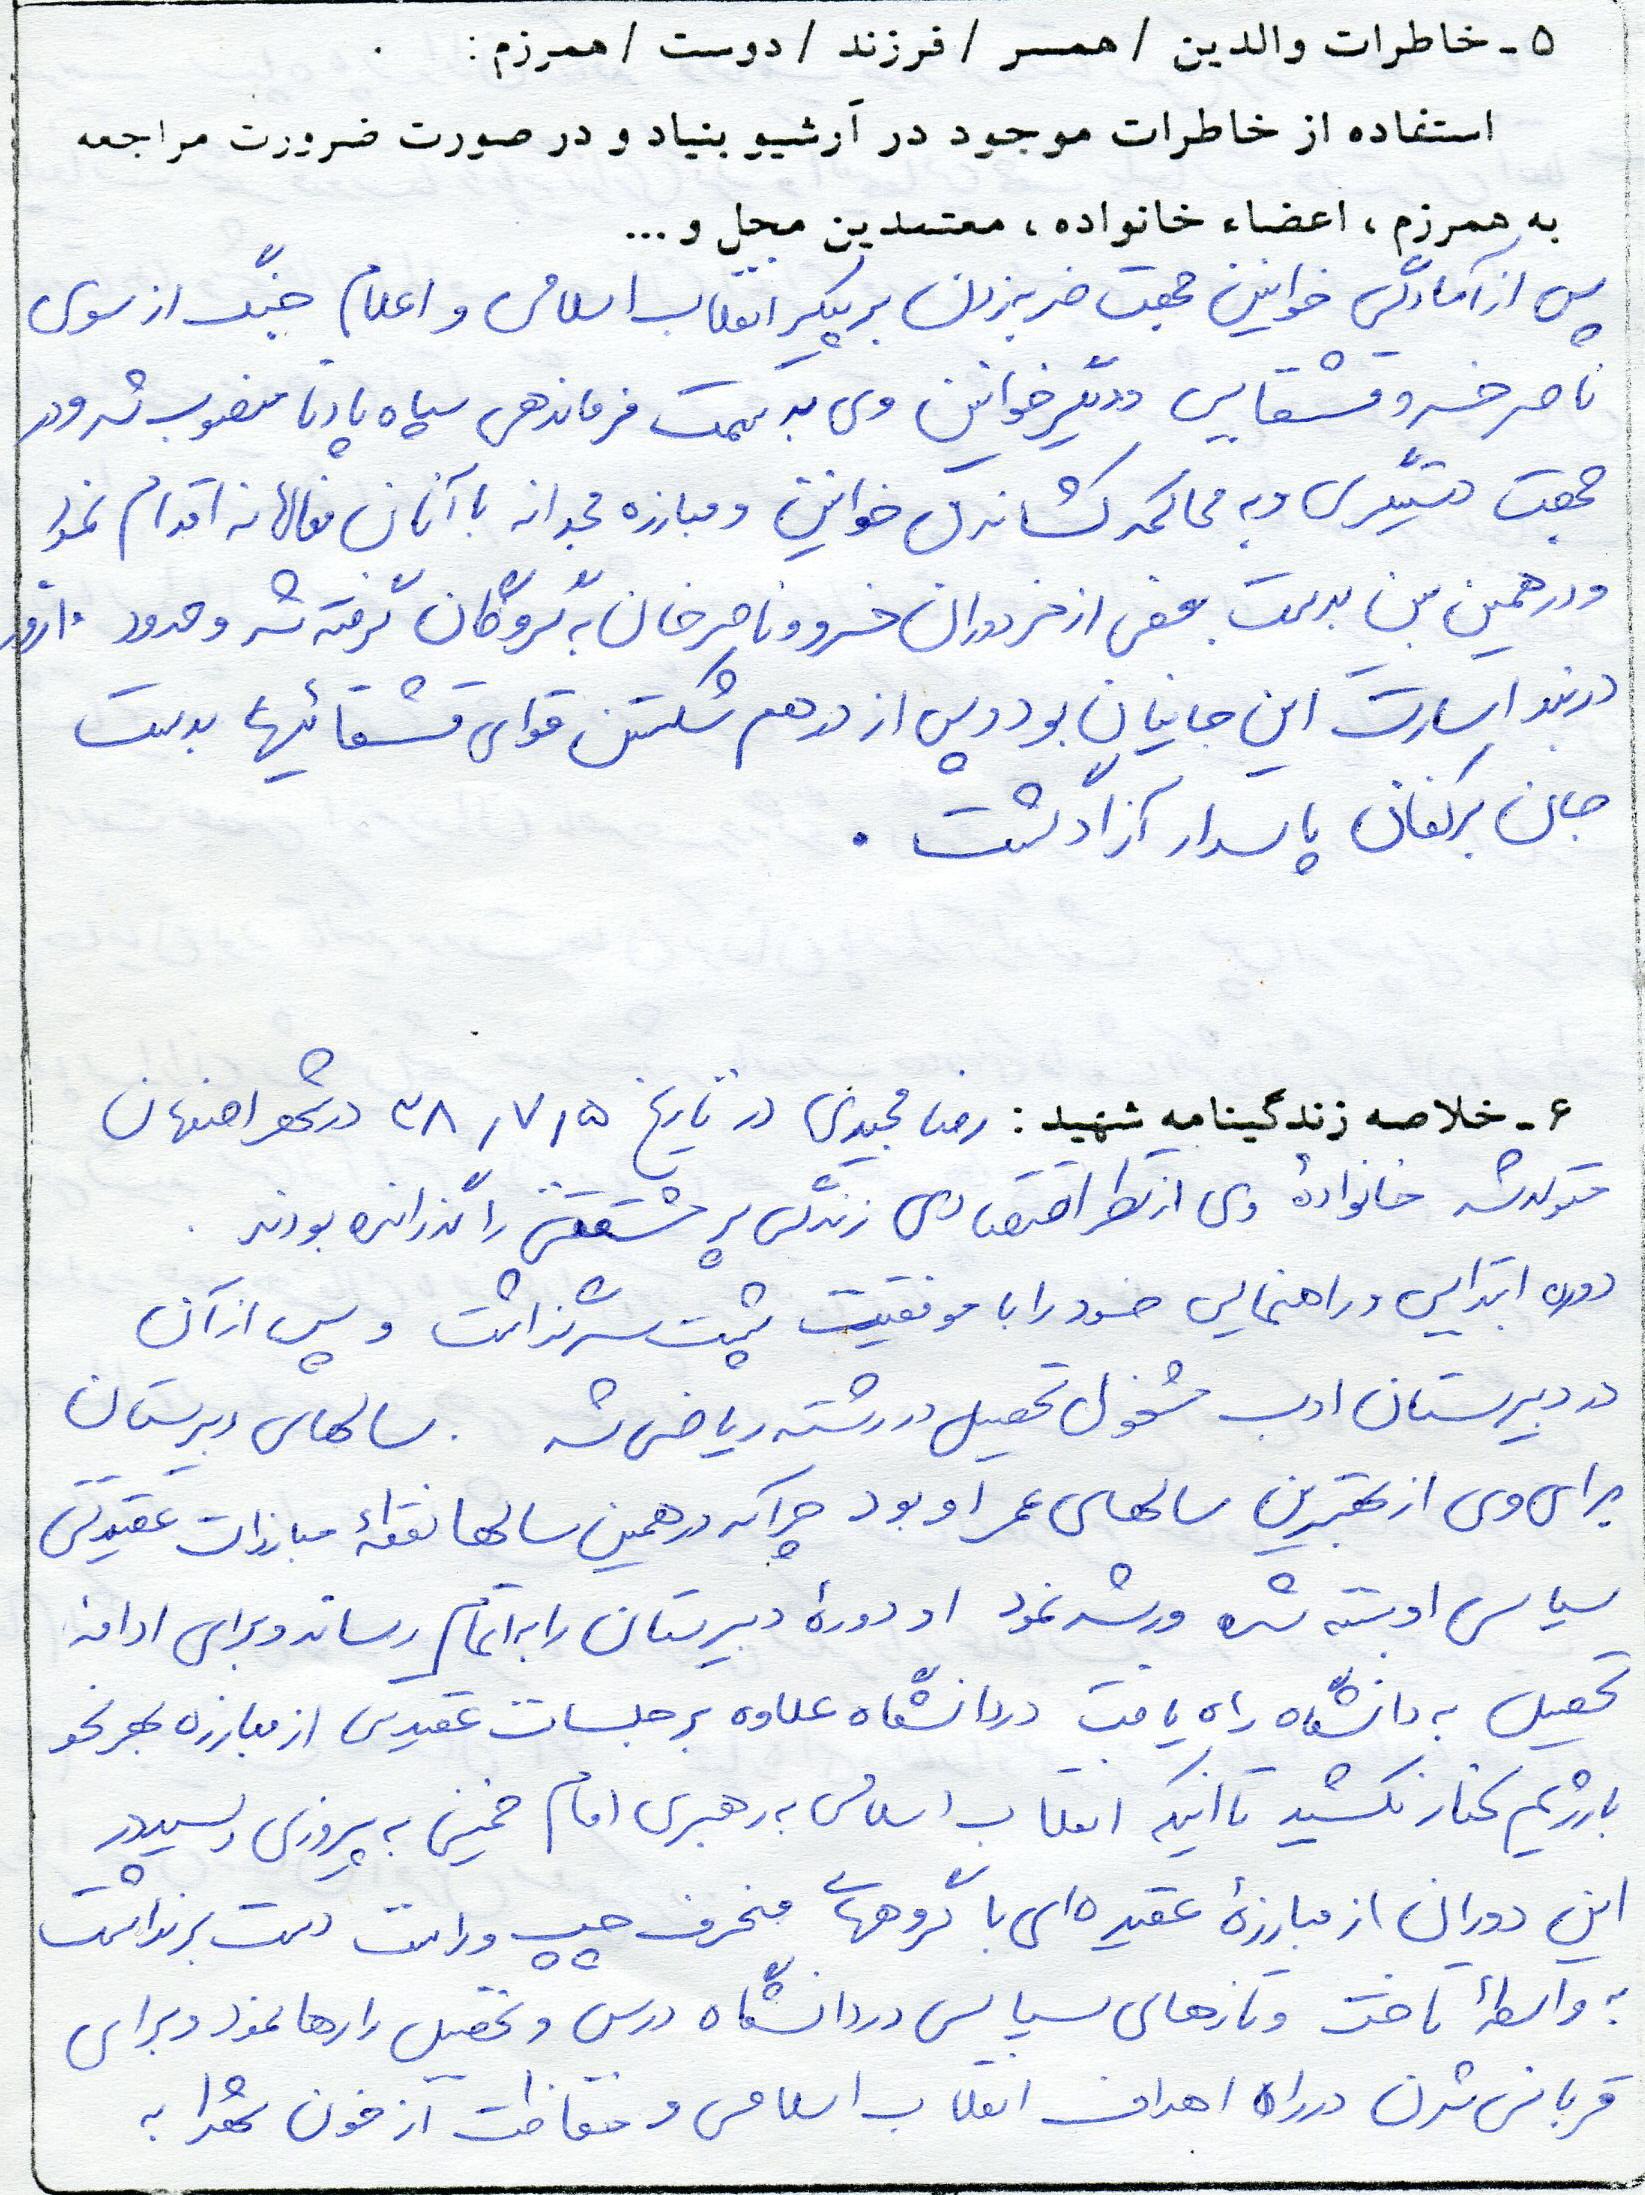 ۵ـ خاطرات والدین / همسر / فرزند / دوست / همرزم :
استفاده از خاطرات موجود در آرشیو بنیاد و در صورت ضرورت مراجعه
به همرزم ، اعضاء خانواده ، معتمدین محل و ...
پس از آمادگی خوانین جهت ضربه زدن بر پیکر انقلاب اسلامی و اعلام جنگ از سوی
ناصر خسرو قشقایی و دیگر خوانین وی به سمت فرماندهی سپاه پادنا منصوب شد و در
جهت دستگیری و به محاکمه کشاندن خوانین و مبارزه مجدانه با آنان فعالانه اقدام نمود
و در همین بین بدست بعضی از مزدوران خسرو و ناصر خان به گروگان گرفته شد و حدود ۱۰ روز
در بند اسارت این جانیان بود و پس از درهم شکستن قوای قشقائیها بدست
جان برکفان پاسدار آزاد گشت .
۶ـ خلاصه زندگینامه شهید : رضا مجیدی در تاریخ ۳۸/۷/۵ در شهر اصفهان
متولد شد خانوادۀ وی از نظر اقتصادی زندگی پر مشقتی را گذرانده بودند .
دوره ابتدایی و راهنمایی خود را با موفقیت پشت سر گذاشت و پس از آن
در دبیرستان ادب مشغول تحصیل در رشته ریاضی شد . سالهای دبیرستان
برای وی از بهترین سالهای عمر او بود چرا که در همین سالها نطفۀ مبارزات عقیدتی
سیاسی او بسته شده و رشد نمود او دورۀ دبیرستان را به اتمام رساند و برای ادامۀ
تحصیل به دانشگاه راه یافت در دانشگاه علاوه بر جلسات عقیدتی از مبارزه بهر نحو
با رژیم کنار نکشید تا اینکه انقلاب اسلامی به رهبری امام خمینی به پیروزی رسید در
این دوران از مبارزۀ عقیده ای با گروههای منحرف چپ و راست دست برنداشت
به واسطۀ تاخت و تازهای سیاسی در دانشگاه درس و تحصیل را رها نمود و برای
قربانی شدن در راه اهداف انقلاب اسلامی و حفاظت از خون شهدا به